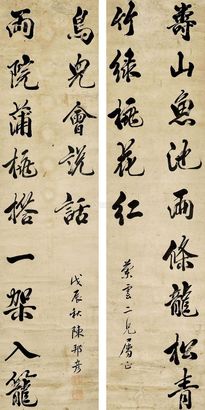 壽山魚池兩條龍松青
竹綠桃花紅
雲二兄屬正
兩院蒲桃搭一架入籠
鳥兒會說話
戊辰秋陳邦彥